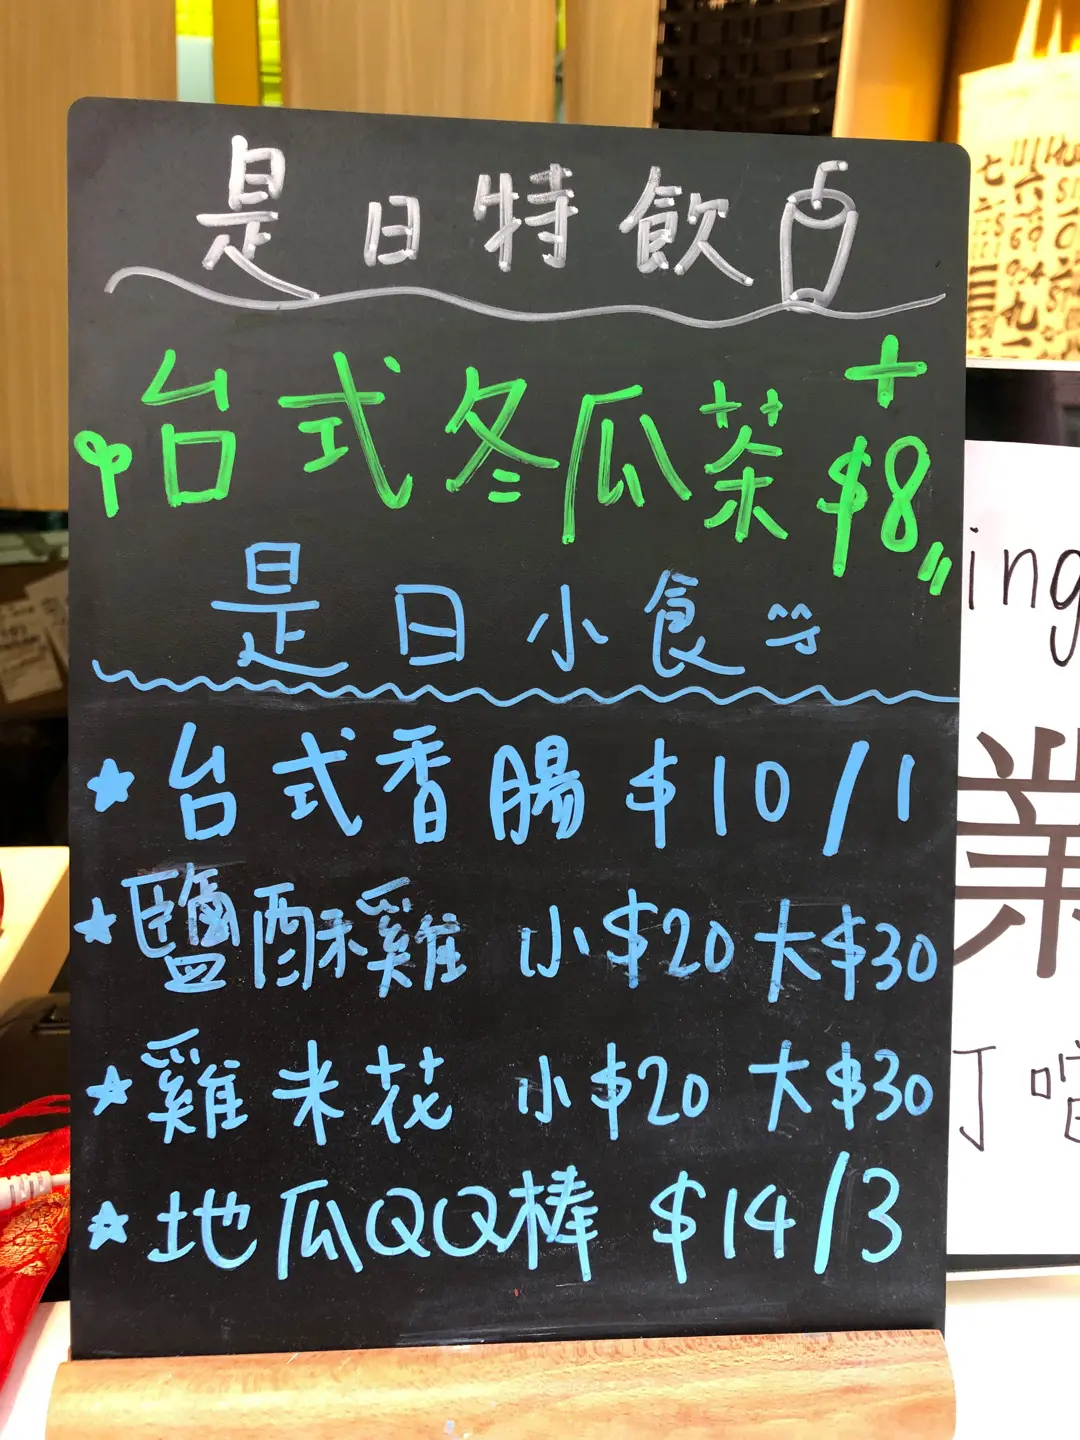 是日特飲
台式冬瓜茶 +$8
是日小食
台式香腸 $10/1
鹽酥雞 小$20 大$30
雞米花 小$20 大$30
地瓜QQ棒 $14/3
ing
業
叮噹